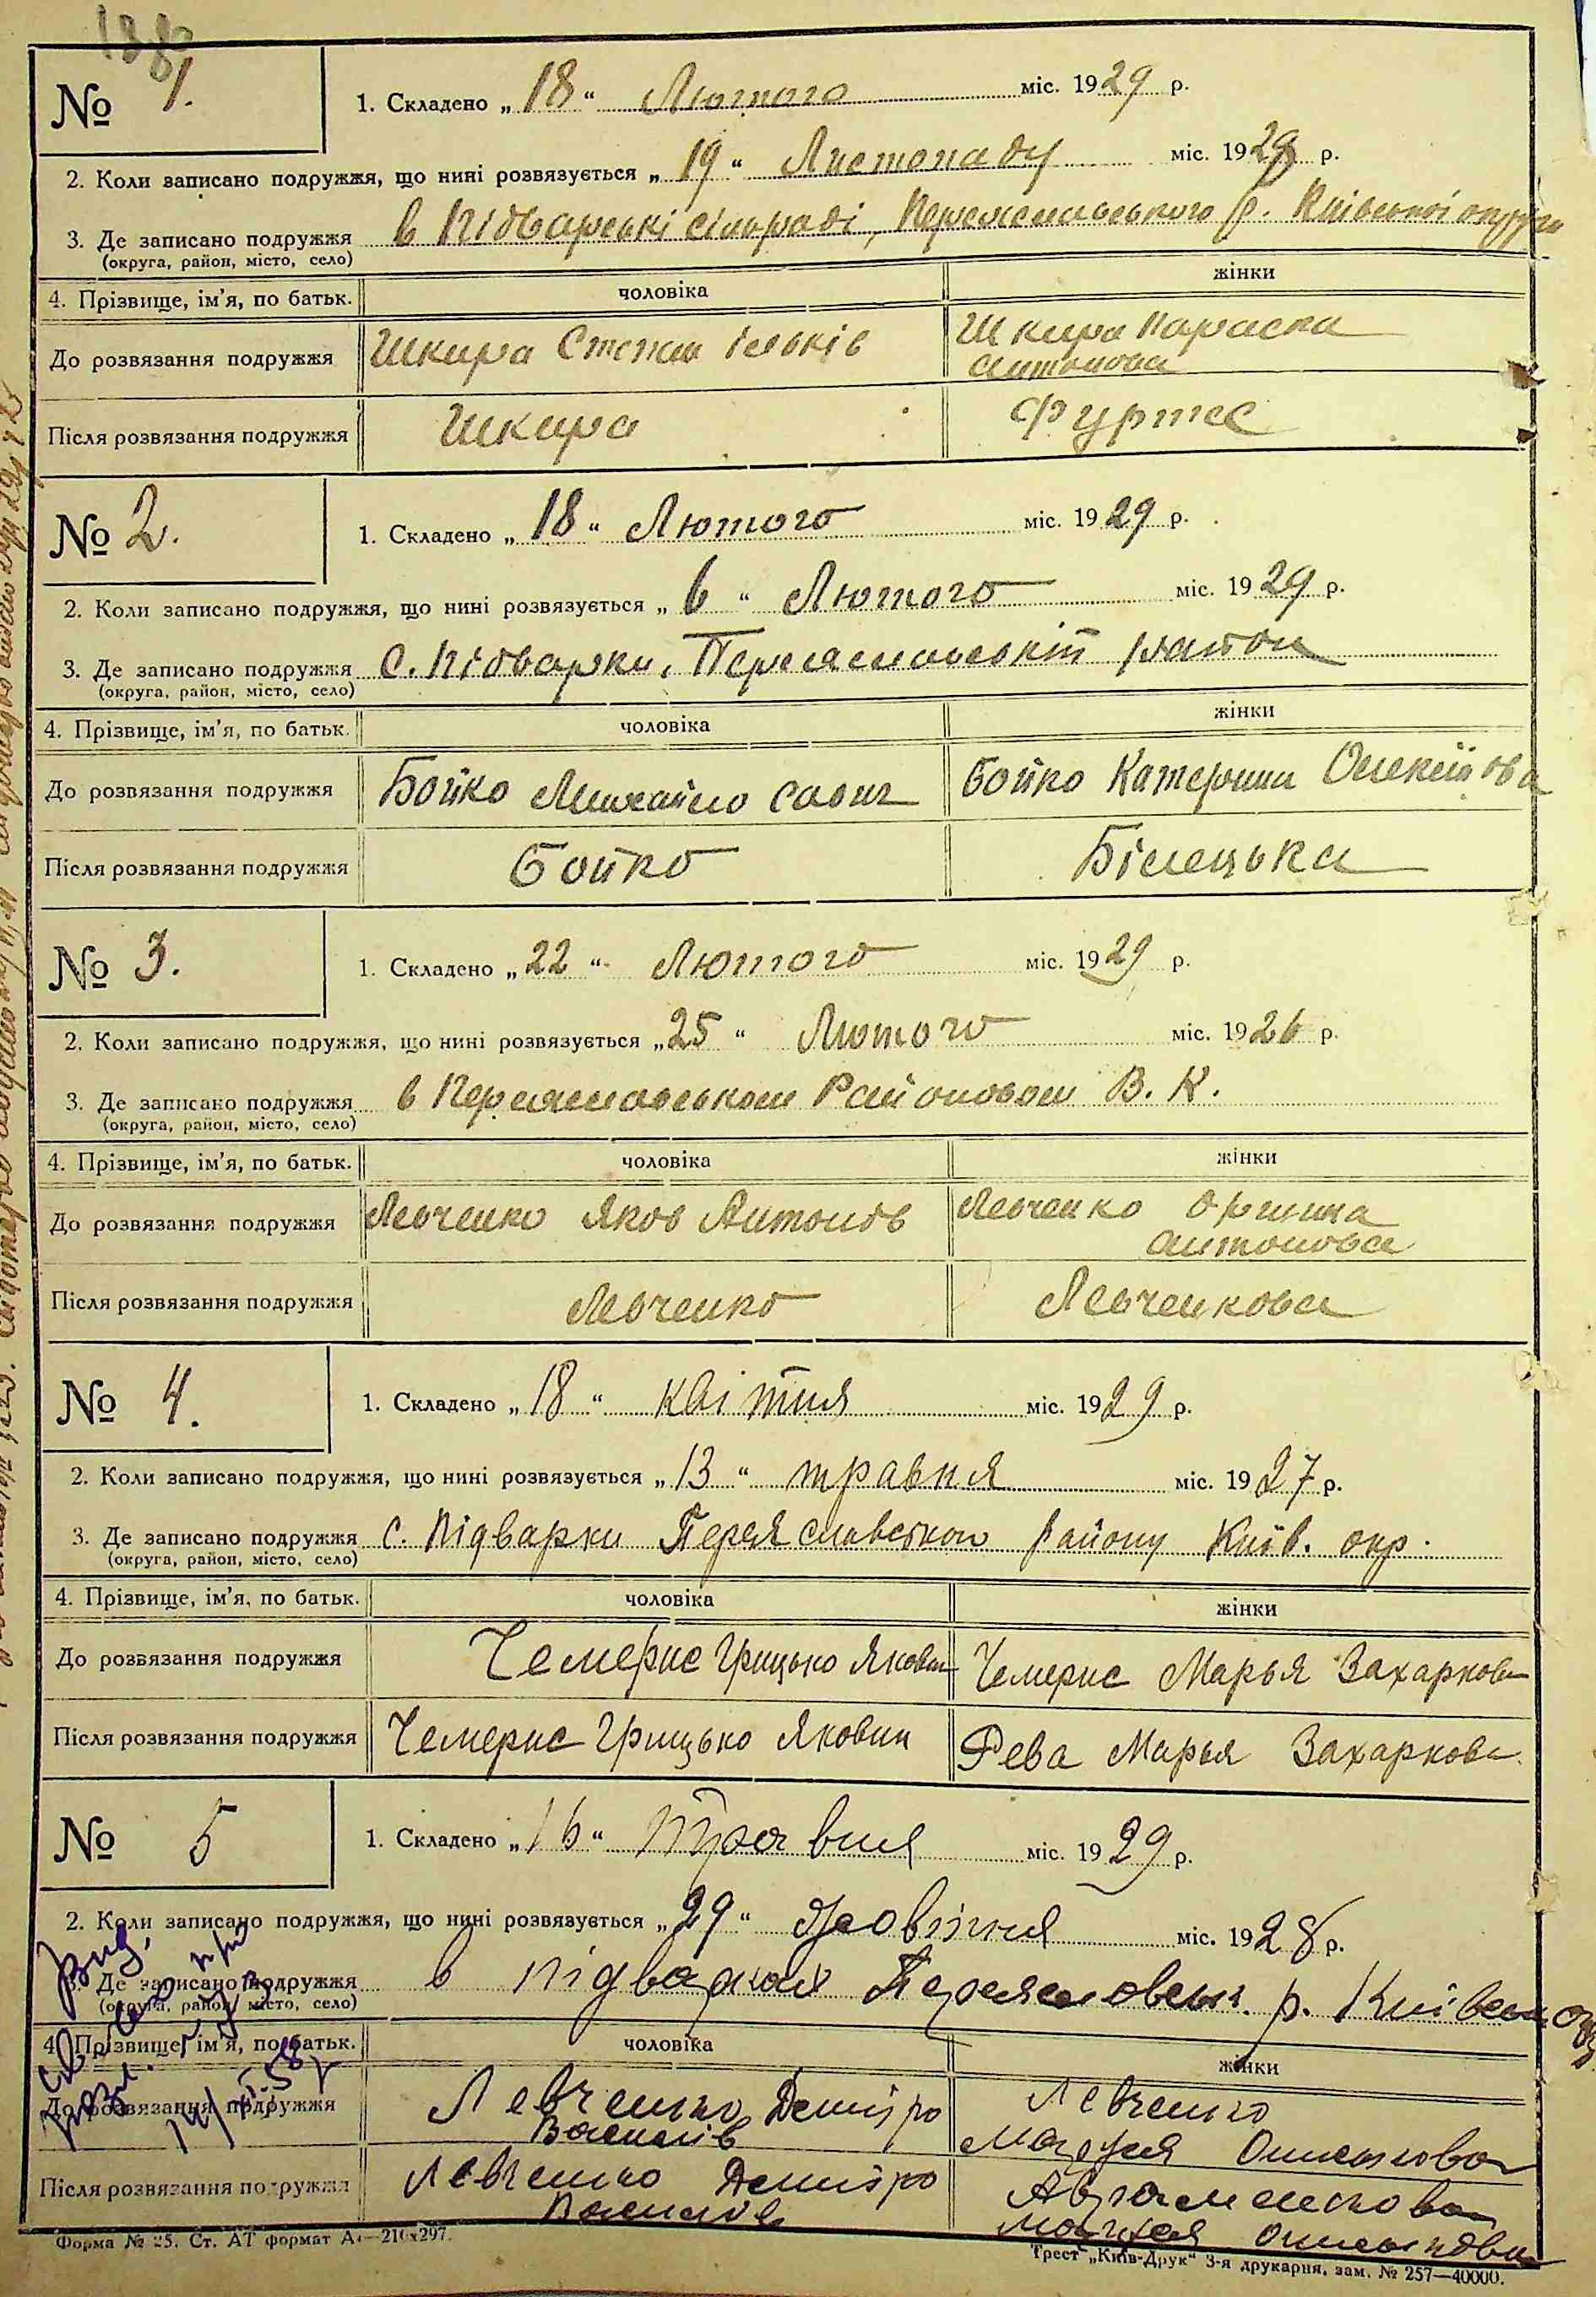 № 1.
1. Складено „18“ Лютого міс. 1929 р.
2. Коли записано подружжя, що нині розвязується „19“ Листопаду міс. 192 р.
3. Де записано подружжя в Підварські сільраді, Переяславського р. Київської округи
(округа, район, місто, село)
4. Прізвище, ім’я, по батьк. чоловіка жінки
До розвязання подружжя Шкира Степан Ільків Шкира Параска
Антонова
Після розвязання подружжя Шкира
№ 2.
1. Складено „18“ Лютого міс. 1929 р.
2. Коли записано подружжя, що нині розвязується „6“ Лютого міс. 1929 р.
3. Де записано подружжя с. Підварки, Переяславській район
(округа, район, місто, село)
4. Прізвище, ім’я, по батьк. чоловіка жінки
До розвязання подружжя Бойко Михайло Бойко Катерина Олексійова
Після розвязання подружжя Бойко Білецька
№ 3.
1. Складено „22“ Лютого міс. 1929 р.
2. Коли записано подружжя, що нині розвязується „25“ Лютого міс. 1926 р.
3. Де записано подружжя в Переяславськом Районовом В. К.
(округа, район, місто, село)
4. Прізвище, ім’я, по батьк. чоловіка жінки
До розвязання подружжя Левченко Яков Антонов Левченко Орина
Антонова
Після розвязання подружжя Левченко Левченкова
№ 4.
1. Складено „18“ квітня міс. 1929 р.
2. Коли записано подружжя, що нині розвязується „13“ травня міс. 1927 р.
3. Де записано подружжя с. Підварки Переяславського району Київ. окр.
(округа, район, місто, село)
4. Прізвище, ім’я, по батьк. чоловіка жінки
До розвязання подружжя Чемерис Грицько Якович Чемерис Марья Захаркова
Після розвязання подружжя Чемерис Грицько Якович Рева Марья Захаркова
№ 5
1. Складено „16“ Травня міс. 1929 р.
2. Коли записано подружжя, що нині розвязується „29“ Жовтня міс. 1928 р.
3. Де записано подружжя в підварках Переяславськ. р. Київськ. окр.
(округа, район, місто, село)
4. Прізвище, ім’я, по батьк. чоловіка жінки
До розвязання подружжя Левченко Дмитро Левченко
Василів Марія
Після розвязання подружжя Левченко Дмитро Авраменкова
Василів Марія
Форма № 25. Ст. АТ формат А4—210x297.
Трест „Київ-Друк“ 3-я друкарня, зам. № 257—40000.